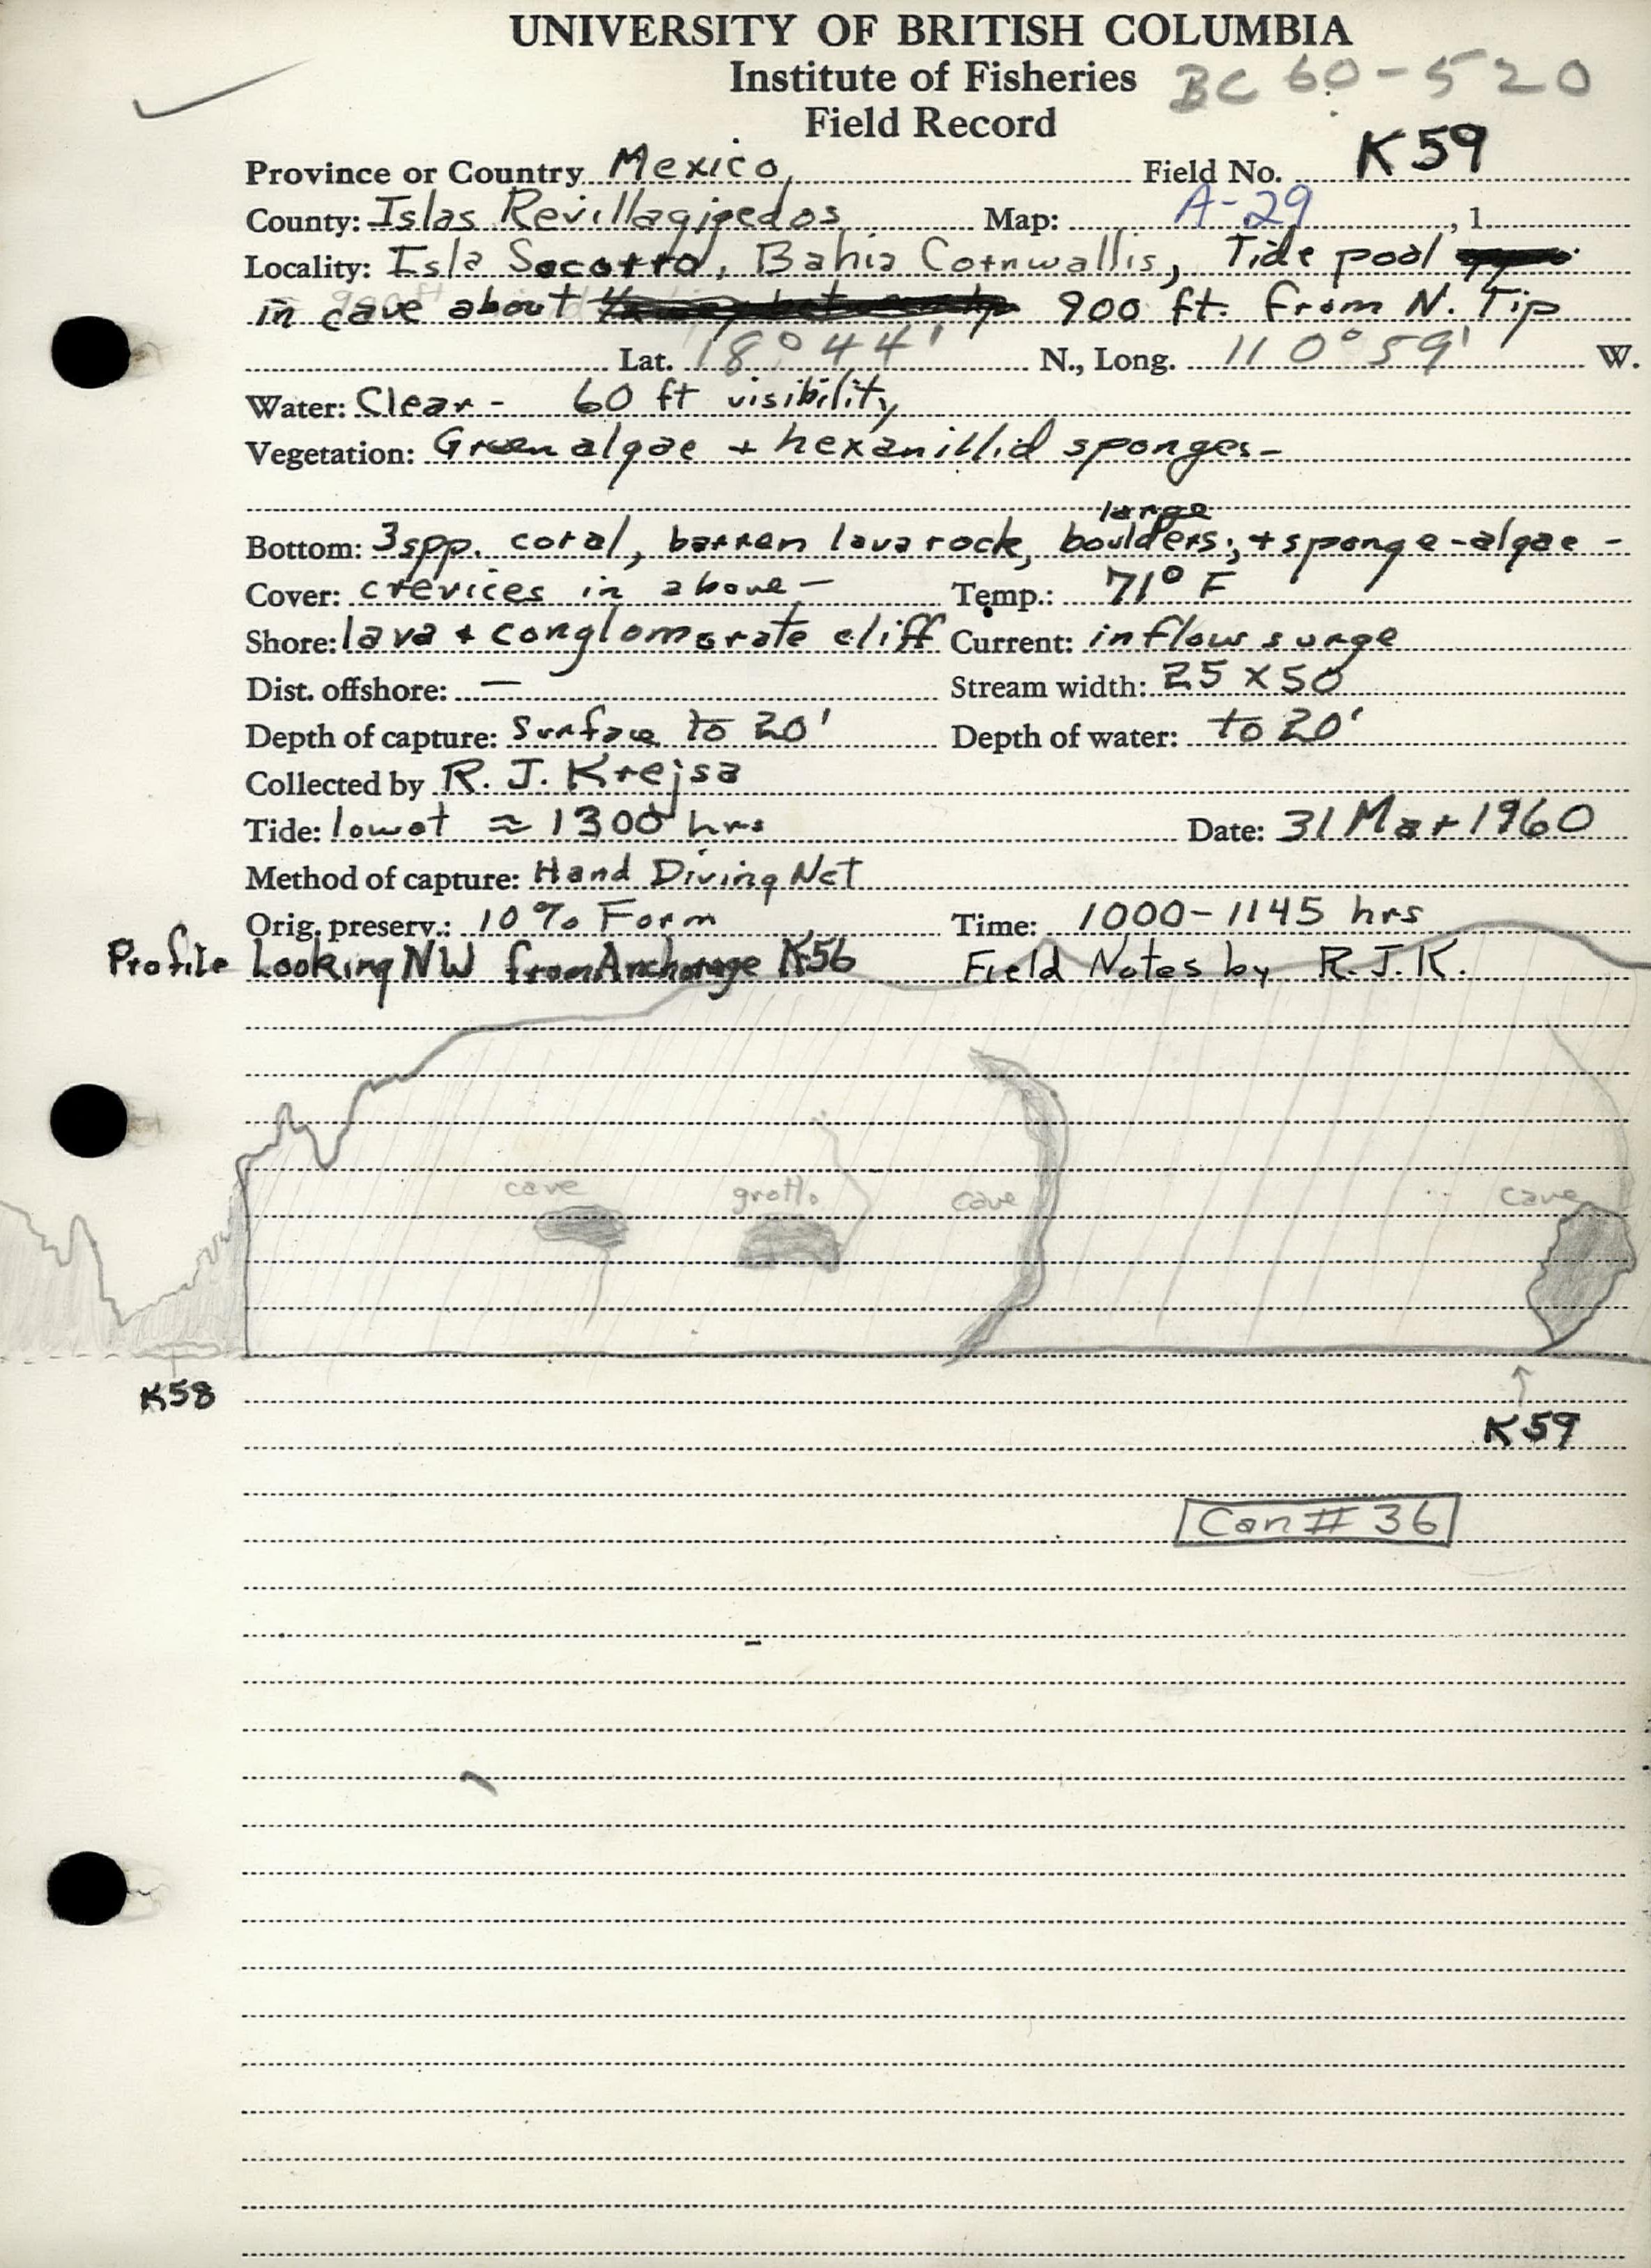 UNIVERSITY OF BRITISH COLUMBIA
Institute of Fisheries BC 60-520
Field Record
Province or Country Mexico Field No. K59
County: Islas Revillagigedos Map: A-29, 1
Locality: Isla Socorro, Bahia Cornwallis, Tide pool
in cave about 900 ft. from N. Tip
Lat. 18°44' N., Long. 110°59' W.
Water: Clear - 60 ft visibility
Vegetation: Green algae + hexanillid sponges-
large
Bottom: 3spp. coral, barren lava rock, boulders; + sponge-algae -
Cover: crevices in above - Temp.: 71° F
Shore: lava + conglomerate cliff Current: inflow surge
Dist. offshore: — Stream width: 25 x 50
Depth of capture: Surface to 20' Depth of water: to 20'
Collected by R. J. Krejsa
Tide: low at ≈ 1300 hrs Date: 31 Mar 1960
Method of capture: Hand Diving Net
Orig. preserv.: 10% Form Time: 1000-1145 hrs
Profile Looking NW from Anchorage K56 Field Notes by R.J.K.
cave grotto cave cave
K58
K59
Can # 36